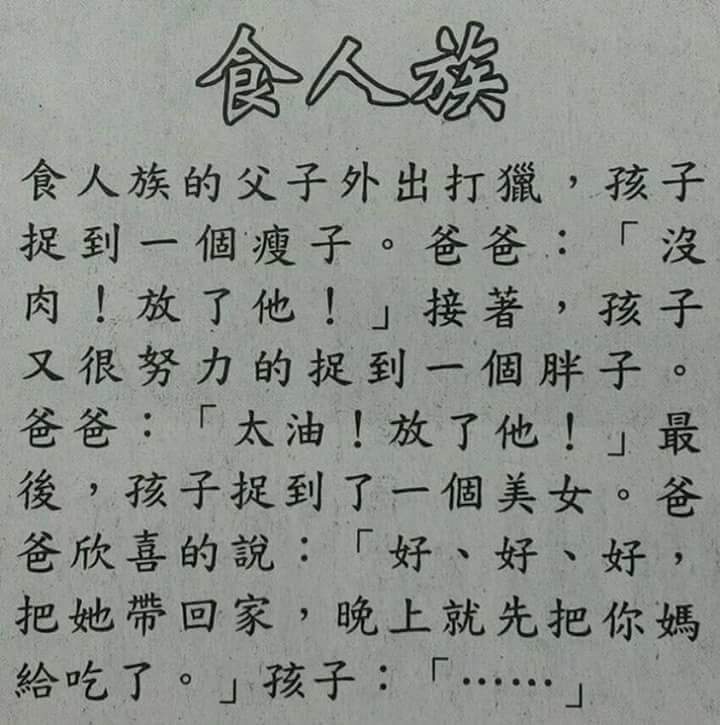 食人族
食人族的父子外出打獵，孩子
捉到一個瘦子。爸爸：「沒
肉！放了他！」接著，孩子
又很努力的捉到一個胖子。
爸爸：「太油！放了他！」最
後，孩子捉到了一個美女。爸
爸欣喜的說：「好、好、好，
把她帶回家，晚上就先把你媽
給吃了。」孩子：「……」